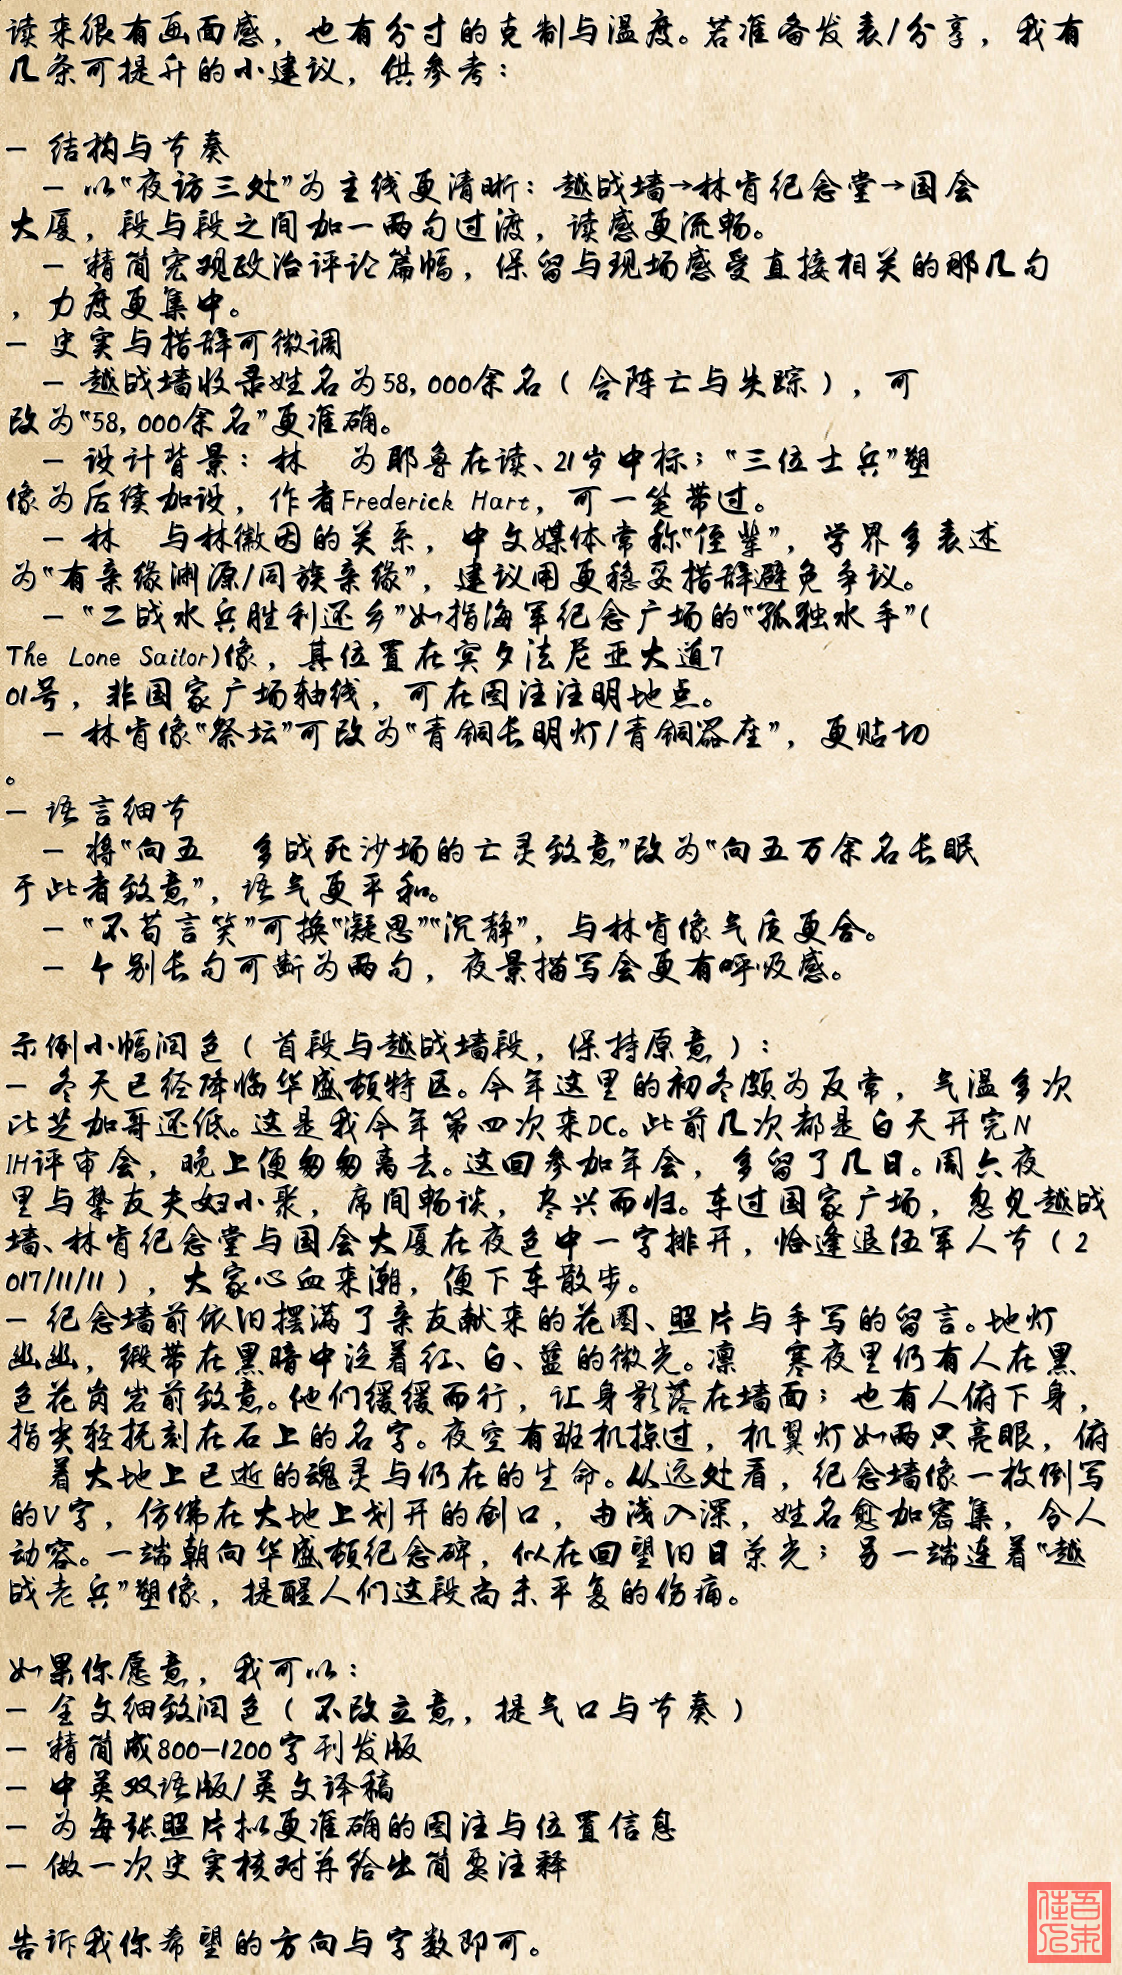 读来很有画面感，也有分寸的克制与温度。若准备发表/分享，我有
几条可提升的小建议，供参考：
- 结构与节奏
- 以“夜访三处”为主线更清晰：越战墙→林肯纪念堂→国会
大厦，段与段之间加一两句过渡，读感更流畅。
- 精简宏观政治评论篇幅，保留与现场感受直接相关的那几句
，力度更集中。
- 史实与措辞可微调
- 越战墙收录姓名为58,000余名（含阵亡与失踪），可
改为“58,000余名”更准确。
- 设计背景：林 为耶鲁在读、21岁中标；“三位士兵”塑
像为后续加设，作者Frederick Hart，可一笔带过。
- 林 与林徽因的关系，中文媒体常称“侄辈”，学界多表述
为“有亲缘渊源/同族亲缘”，建议用更稳妥措辞避免争议。
- “二战水兵胜利还乡”如指海军纪念广场的“孤独水手”(
The Lone Sailor)像，其位置在宾夕法尼亚大道7
01号，非国家广场轴线，可在图注注明地点。
- 林肯像“祭坛”可改为“青铜长明灯/青铜器座”，更贴切
。
- 语言细节
- 将“向五 多战死沙场的亡灵致意”改为“向五万余名长眠
于此者致意”，语气更平和。
- “不苟言笑”可换“凝思”“沉静”，与林肯像气质更合。
- 个别长句可断为两句，夜景描写会更有呼吸感。
示例小幅润色（首段与越战墙段，保持原意）：
- 冬天已经降临华盛顿特区。今年这里的初冬颇为反常，气温多次
比芝加哥还低。这是我今年第四次来DC。此前几次都是白天开完N
IH评审会，晚上便匆匆离去。这回参加年会，多留了几日。周六夜
里与挚友夫妇小聚，席间畅谈，尽兴而归。车过国家广场，忽见越战
墙、林肯纪念堂与国会大厦在夜色中一字排开，恰逢退伍军人节（2
017/11/11），大家心血来潮，便下车散步。
- 纪念墙前依旧摆满了亲友献来的花圈、照片与手写的留言。地灯
幽幽，缎带在黑暗中泛着红、白、蓝的微光。凛 寒夜里仍有人在黑
色花岗岩前致意。他们缓缓而行，让身影落在墙面；也有人俯下身，
指尖轻抚刻在石上的名字。夜空有班机掠过，机翼灯如两只亮眼，俯
着大地上已逝的魂灵与仍在的生命。从远处看，纪念墙像一枚倒写
的V字，仿佛在大地上划开的创口，由浅入深，姓名愈加密集，令人
动容。一端朝向华盛顿纪念碑，似在回望旧日荣光；另一端连着“越
战老兵”塑像，提醒人们这段尚未平复的伤痛。
如果你愿意，我可以：
- 全文细致润色（不改立意，提气口与节奏）
- 精简成800-1200字刊发版
- 中英双语版/英文译稿
- 为每张照片拟更准确的图注与位置信息
- 做一次史实核对并给出简要注释
告诉我你希望的方向与字数即可。